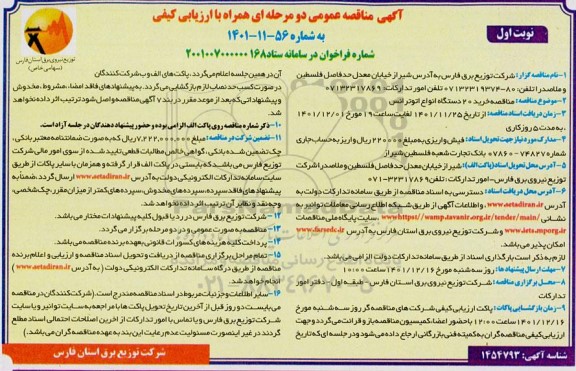 آگهی مناقصه عمومی دو مرحله ای همراه با ارزیابی کیفی
به شماره ۵۶-۱۱-۱۴۰۱
شماره فراخوان در سامانه ستاد ۲۰۰۱۰۰۷۰۰۰۰۰۰۱۶۸
نوبت اول
شرکت توزیع نیروی برق استان فارس
(سهامی خاص)
۱- نام مناقصه گزار: شرکت توزیع برق فارس به آدرس شیراز خیابان معدل حدفاصل فلسطین
و ملاصدرا تلفن: ۸۰-۰۷۱۳۲۳۱۹۳۷۴ تلفن امور تدارکات: ۰۷۱۳۲۳۱۷۸۶۹
۲- موضوع مناقصه: خرید ۲۰ دستگاه انواع اتوترانس
۳- زمان دریافت اسناد مناقصه: از تاریخ ۱۴۰۱/۱۱/۲۵ لغایت ساعت ۱۹ مورخ ۱۴۰۱/۱۲/۰۱
، به مدت ۵ روز کاری
۴- مدارک مورد نیاز جهت تحویل اسناد: فیش واریزی به مبلغ ۲۲۰۰۰۰۰ ریال واریز به حساب جاری
۰۷۸۶۰-۷۴۸۲۷ بانک تجارت شعبه فلسطین شیراز
۵- آدرس محل تحویل اسناد (پاکت الف): شیراز خیابان معدل حدفاصل فلسطین و ملاصدرا شرکت
توزیع نیروی برق فارس- امور تدارکات تلفن: ۳۲۳۱۷۸۶۹-۰۷۱
۶- آدرس محل دریافت اسناد: دسترسی به اسناد مناقصه از طریق سامانه تدارکات دولت به
آدرس www.setadiran.ir و اطلاعات آگهی از طریق شبکه اطلاع رسانی معاملات توانیر به
نشانی https://wamp.tavanir.org.ir/tender/main/ سایت پایگاه ملی مناقصات
www.iets.mporg.ir و شرکت توزیع نیروی برق استان فارس به آدرس www.farsedc.ir
امکان پذیر می باشد.
لازم به ذکر است بارگذاری اسناد از طریق سامانه تدارکات دولت الزامی می باشد.
۷- مهلت ارسال پیشنهاد ها: روز سه شنبه مورخ ۱۴۰۱/۱۲/۱۶ ساعت ۱۰:۰۰
۸- محل برگزاری مناقصه: شرکت توزیع نیروی برق استان فارس- طبقه اول- دفتر امور
تدارکات
۹- زمان بازگشایی پاکات: پاکت ارزیابی کیفی شرکت های مناقصه گر روز سه شنبه مورخ
۱۴۰۱/۱۲/۱۶ ساعت ۱۲:۰۰ با حضور اعضا کمیسیون مناقصه باز و قرائت می گردد و جهت
ارزیابی کیفی مناقصه گران به کمیته فنی بازرگانی ارجاع داده می شود و در جلسه ای که تاریخ
آن در همین جلسه اعلام می گردد، پاکت های الف و ب شرکت کنندگان
در صورت کسب حد نصاب لازم بازگشایی می گردد. به پیشنهادهای فاقد امضاء، مشروط، مخدوش
و پیشنهاداتی که بعد از موعد مقرر در بند ۷ آگهی مناقصه واصل شود ترتیب اثر داده نخواهد
شد.
۱۰- ذکر شماره مناقصه روی پاکت الف الزامی بوده و حضور پیشنهاد دهندگان در جلسه آزاد است.
۱۱- تضمین شرکت در مناقصه: مبلغ ۷,۲۲۲,۰۰۰,۰۰۰ ریال که به صورت ضمانتنامه معتبر بانکی،
چک تضمین شده بانکی، گواهی خالص مطالبات قطعی تایید شده از سوی امور مالی شرکت
توزیع فارس می باشد که بایستی در پاکت الف قرار گرفته و همزمان با سایر پاکات از طریق
سایت سامانه تدارکات الکترونیکی دولت به آدرس www.setadiran.ir ارسال گردد. ضمناً به
پیشنهادهای فاقد سپرده، سپرده های مخدوش، سپرده های کمتر از میزان مقرر، چک شخصی،
وجه نقد و نظایر آن ترتیب اثر داده نخواهد شد.
۱۲- شرکت توزیع برق فارس در رد یا قبول کلیه پیشنهادات مختار می باشد.
۱۳- مناقصه به صورت عمومی و در دو مرحله برگزار می گردد.
۱۴- پرداخت کلیه هزینه های کسورات قانونی به عهده برنده مناقصه می باشد.
۱۵- تمام مراحل برگزاری مناقصه از دریافت و تحویل اسناد مناقصه و ارزیابی و اعلام برنده
مناقصه از طریق درگاه سامانه تدارکات الکترونیکی دولت (به آدرس www.setadiran.ir)
انجام خواهد شد.
۱۶- سایر اطلاعات و جزئیات مربوط در اسناد مناقصه مندرج است. (شرکت کنندگان در مناقصه
می بایست دو روز قبل از آخرین تاریخ تحویل پاکت ها با مراجعه به سایت توانیر و یا سایت
شرکت توزیع برق فارس و یا تماس با امور تدارکات از آخرین اصلاحات احتمالی اسناد مطلع
گردند در غیر اینصورت مسئولیت عدم رعایت این بند به عهده مناقصه گران می باشد.)
شناسه آگهی: ۱۴۵۴۷۹۳
شرکت توزیع برق استان فارس